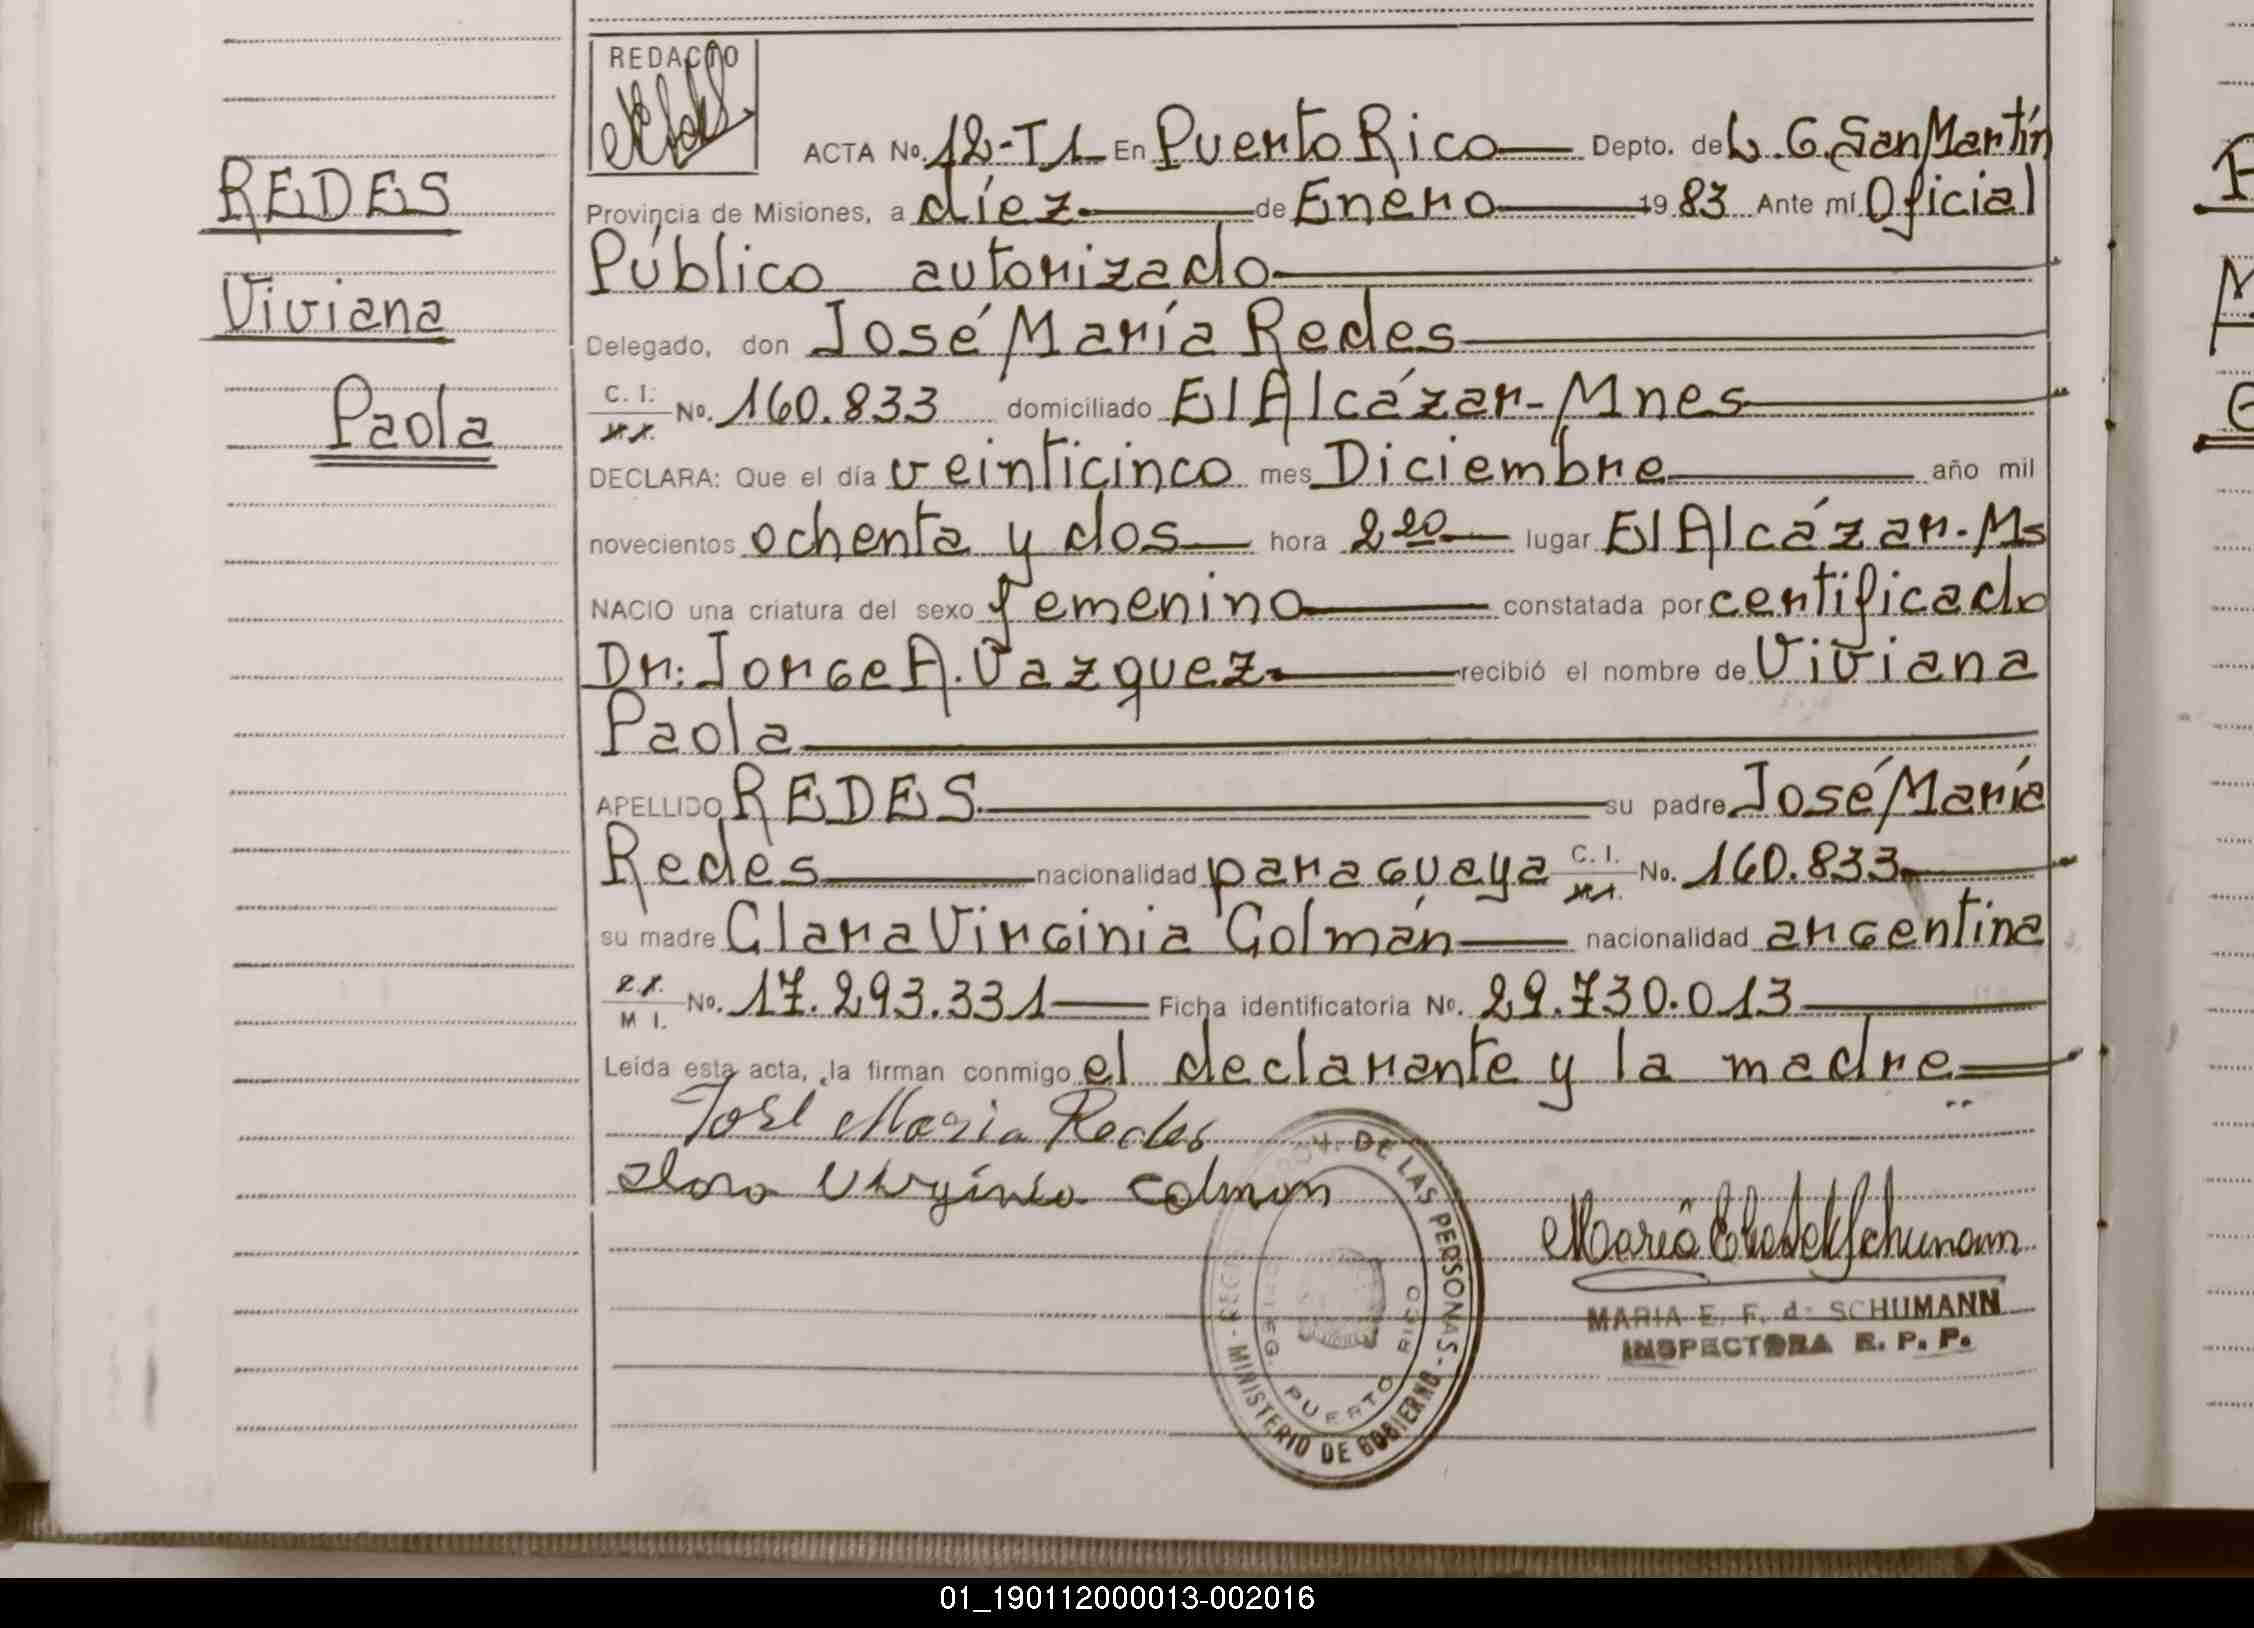 REDACTO
ACTA No. 12-T1 En Puerto Rico Depto. de L. G. San Martín
REDES
Provincia de Misiones, a diez de Enero 1983 Ante mí Oficial
Público autorizado
Viviana
Delegado, don José María Redes
Paola
C. I. No. 160.833 domiciliado El Alcázar-Mnes
DECLARA: Que el día veinticinco mes Diciembre año mil
novecientos ochenta y dos hora 2 20 lugar El Alcázar-Ms
NACIO una criatura del sexo femenino constatada por certificado
Dr: Jorge A. Vazquez recibió el nombre de Viviana
Paola
APELLIDO REDES su padre José María
Redes nacionalidad paraguaya C. I. No. 160.833
su madre Clara Virginia Colmán nacionalidad argentina
M I. No. 17.293.331 Ficha identificatoria No. 29.730.013
Leída esta acta, la firman conmigo el declarante y la madre
José Maria Redes
Clara Virginia Colman
DE LAS PERSONAS - MINISTERIO DE GOBIERNO -
PUERTO RICO
MARIA E. F. de SCHUMANN
INSPECTORA R. P. P.
01_190112000013-002016